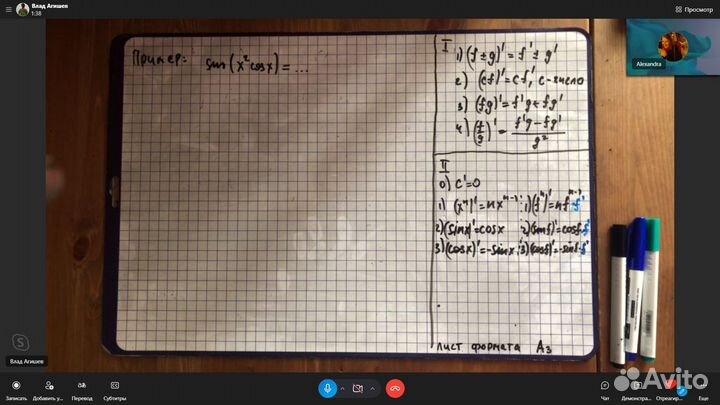 Влад Агишев
1:38
Просмотр
Alexandra
Пример: sin(x² cosx) = ...
I
1) (f ± g)' = f' ± g'
2) (cf)' = cf', c - число
3) (fg)' = f'g + fg'
4) (f/g)' = (f'g - fg')/g²
II
0) c' = 0
1) (xⁿ)' = nxⁿ⁻¹ 1) (fⁿ)' = nfⁿ⁻¹·f'
2) (sinx)' = cosx 2) (sinf)' = cosf·f'
3) (cosx)' = -sinx 3) (cosf)' = -sinf·f'
лист формата А3
Влад Агишев
Запись
Добавить у...
Перевод
Субтитры
Чат
Демонстра...
Отреагир...
Еще
Avito